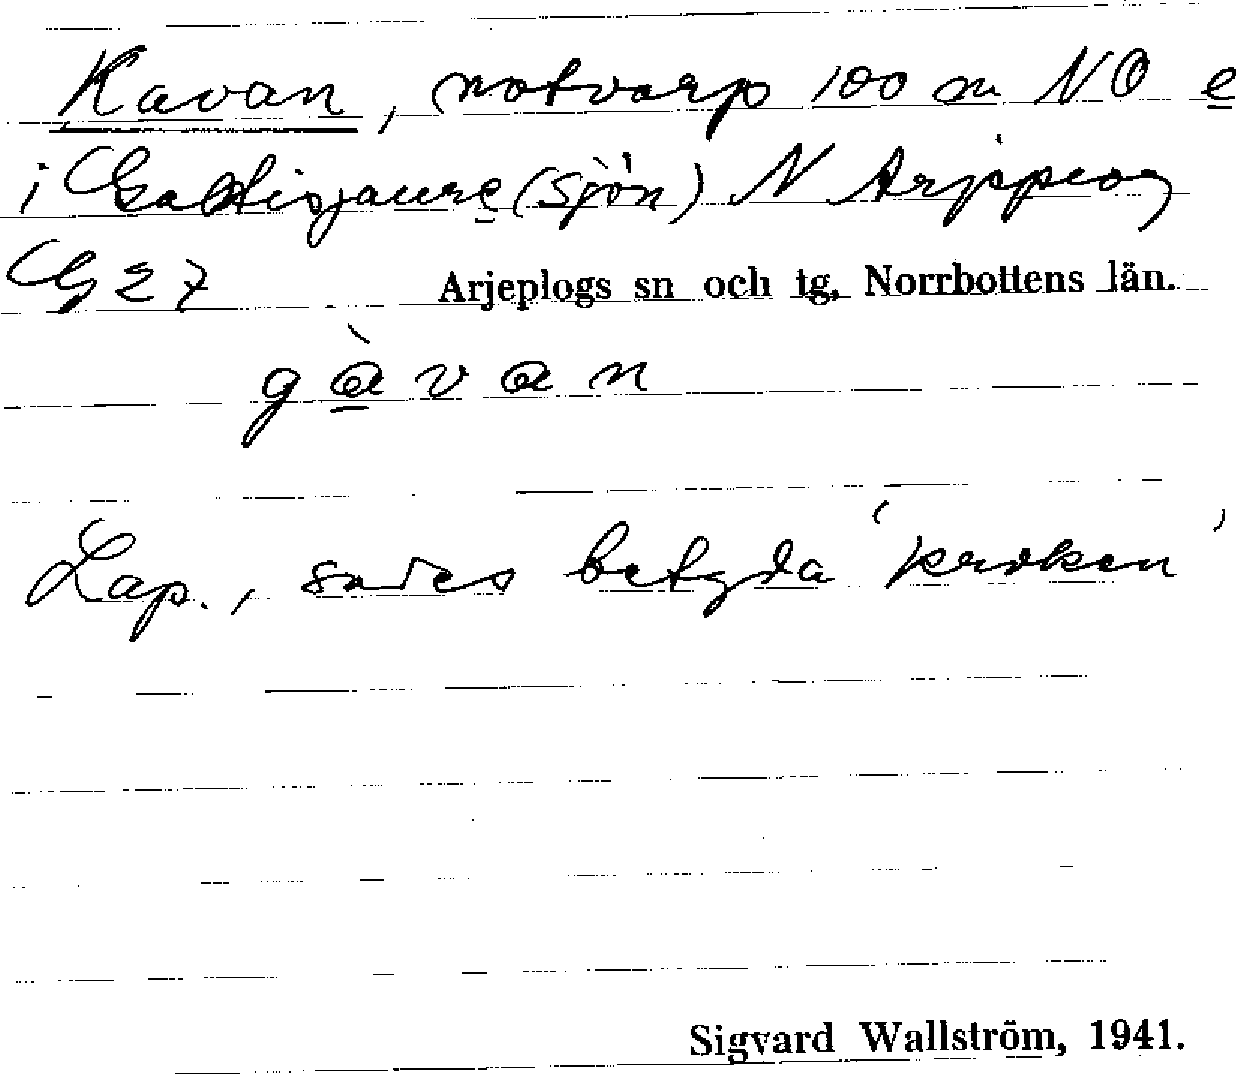 Kavan, notvarp 100 m NO e
i Galtisjaure (sjön) N Arjeplog
G 27 Arjeplogs sn och tg, Norrbottens län.
gàvan
Lap., sades betyda 'kroken'
Sigvard Wallström, 1941.